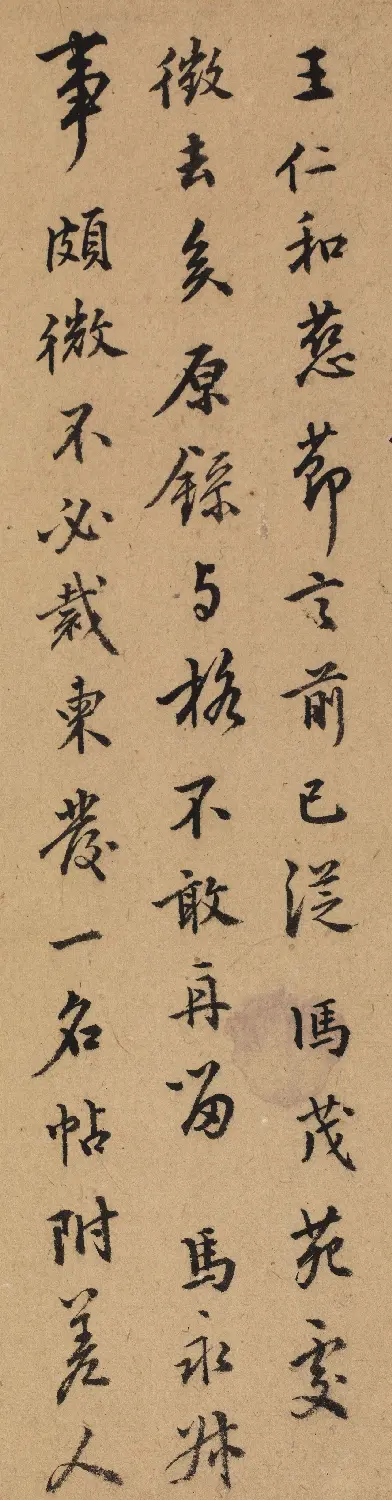 王仁和慈節言前已從馮茂苑處
徵去矣原錄与格不敢再留 馬永年
事頗微不必裁柬發一名帖附差人